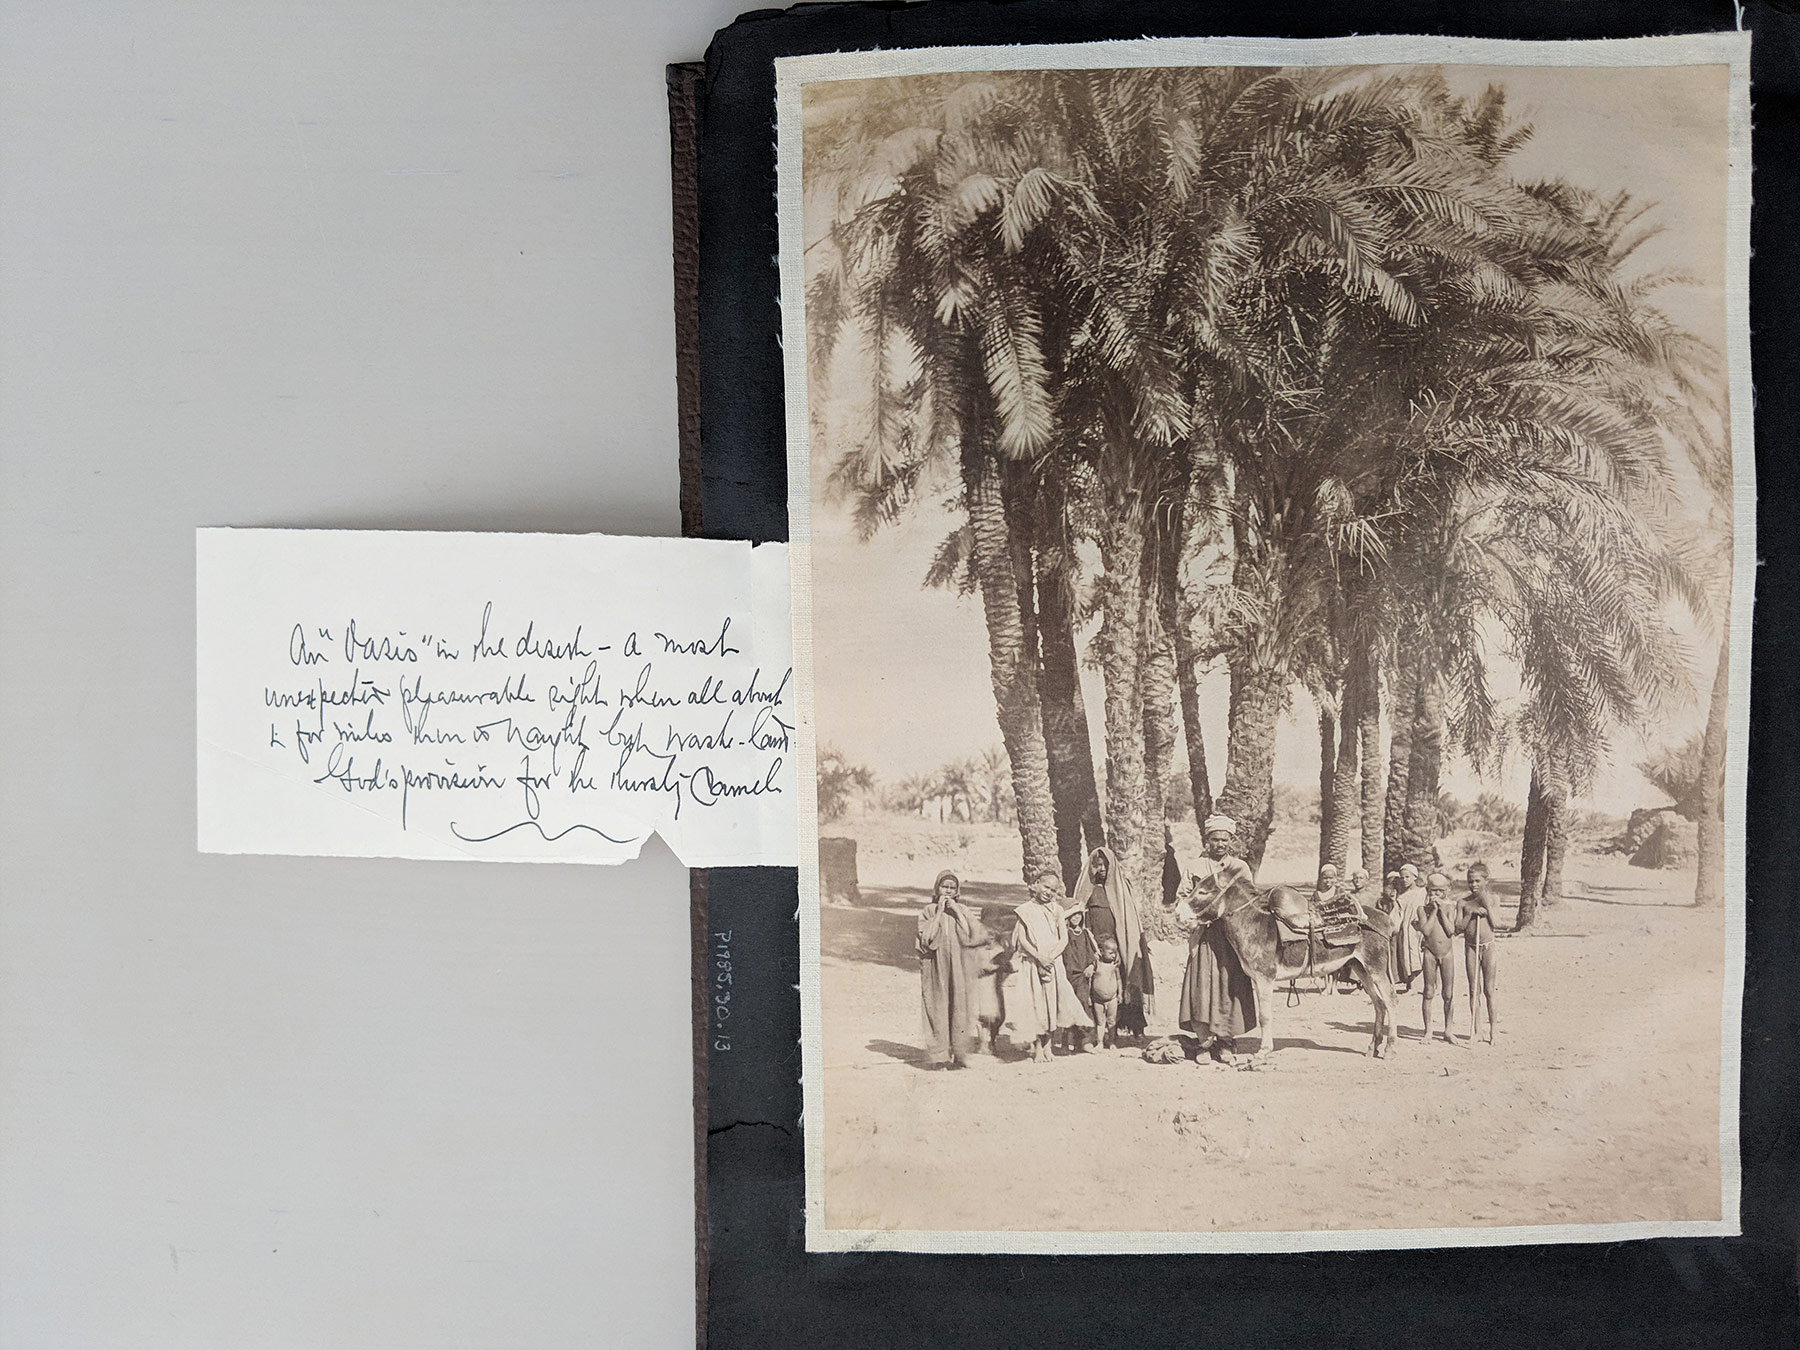 An "Oasis" in the desert – a most
unexpected pleasurable sight when all about
& for miles there is naught but waste-land.
God's provision for the thirsty Camel
P1985.30.13